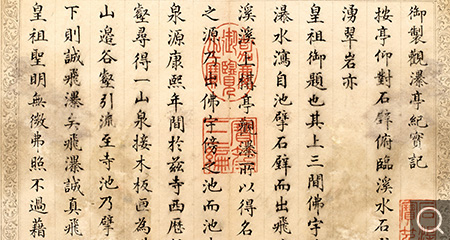 御製觀瀑亭紀實記
按亭仰對石壁俯臨溪水石
湧翠岩亦
皇祖御題也其上三間佛宇
瀑水瀉自池擘石壁而出飛
溪溪上構亭觀瀑所以得名
之源乃出佛宇傍之池而池
泉源康熙年間於茲寺西歷
壑尋得一山泉接木板函為
山邉谷壑引流至寺池乃擘
下則誠飛瀑矣飛瀑誠真飛
皇祖聖明無微弗照不過藉